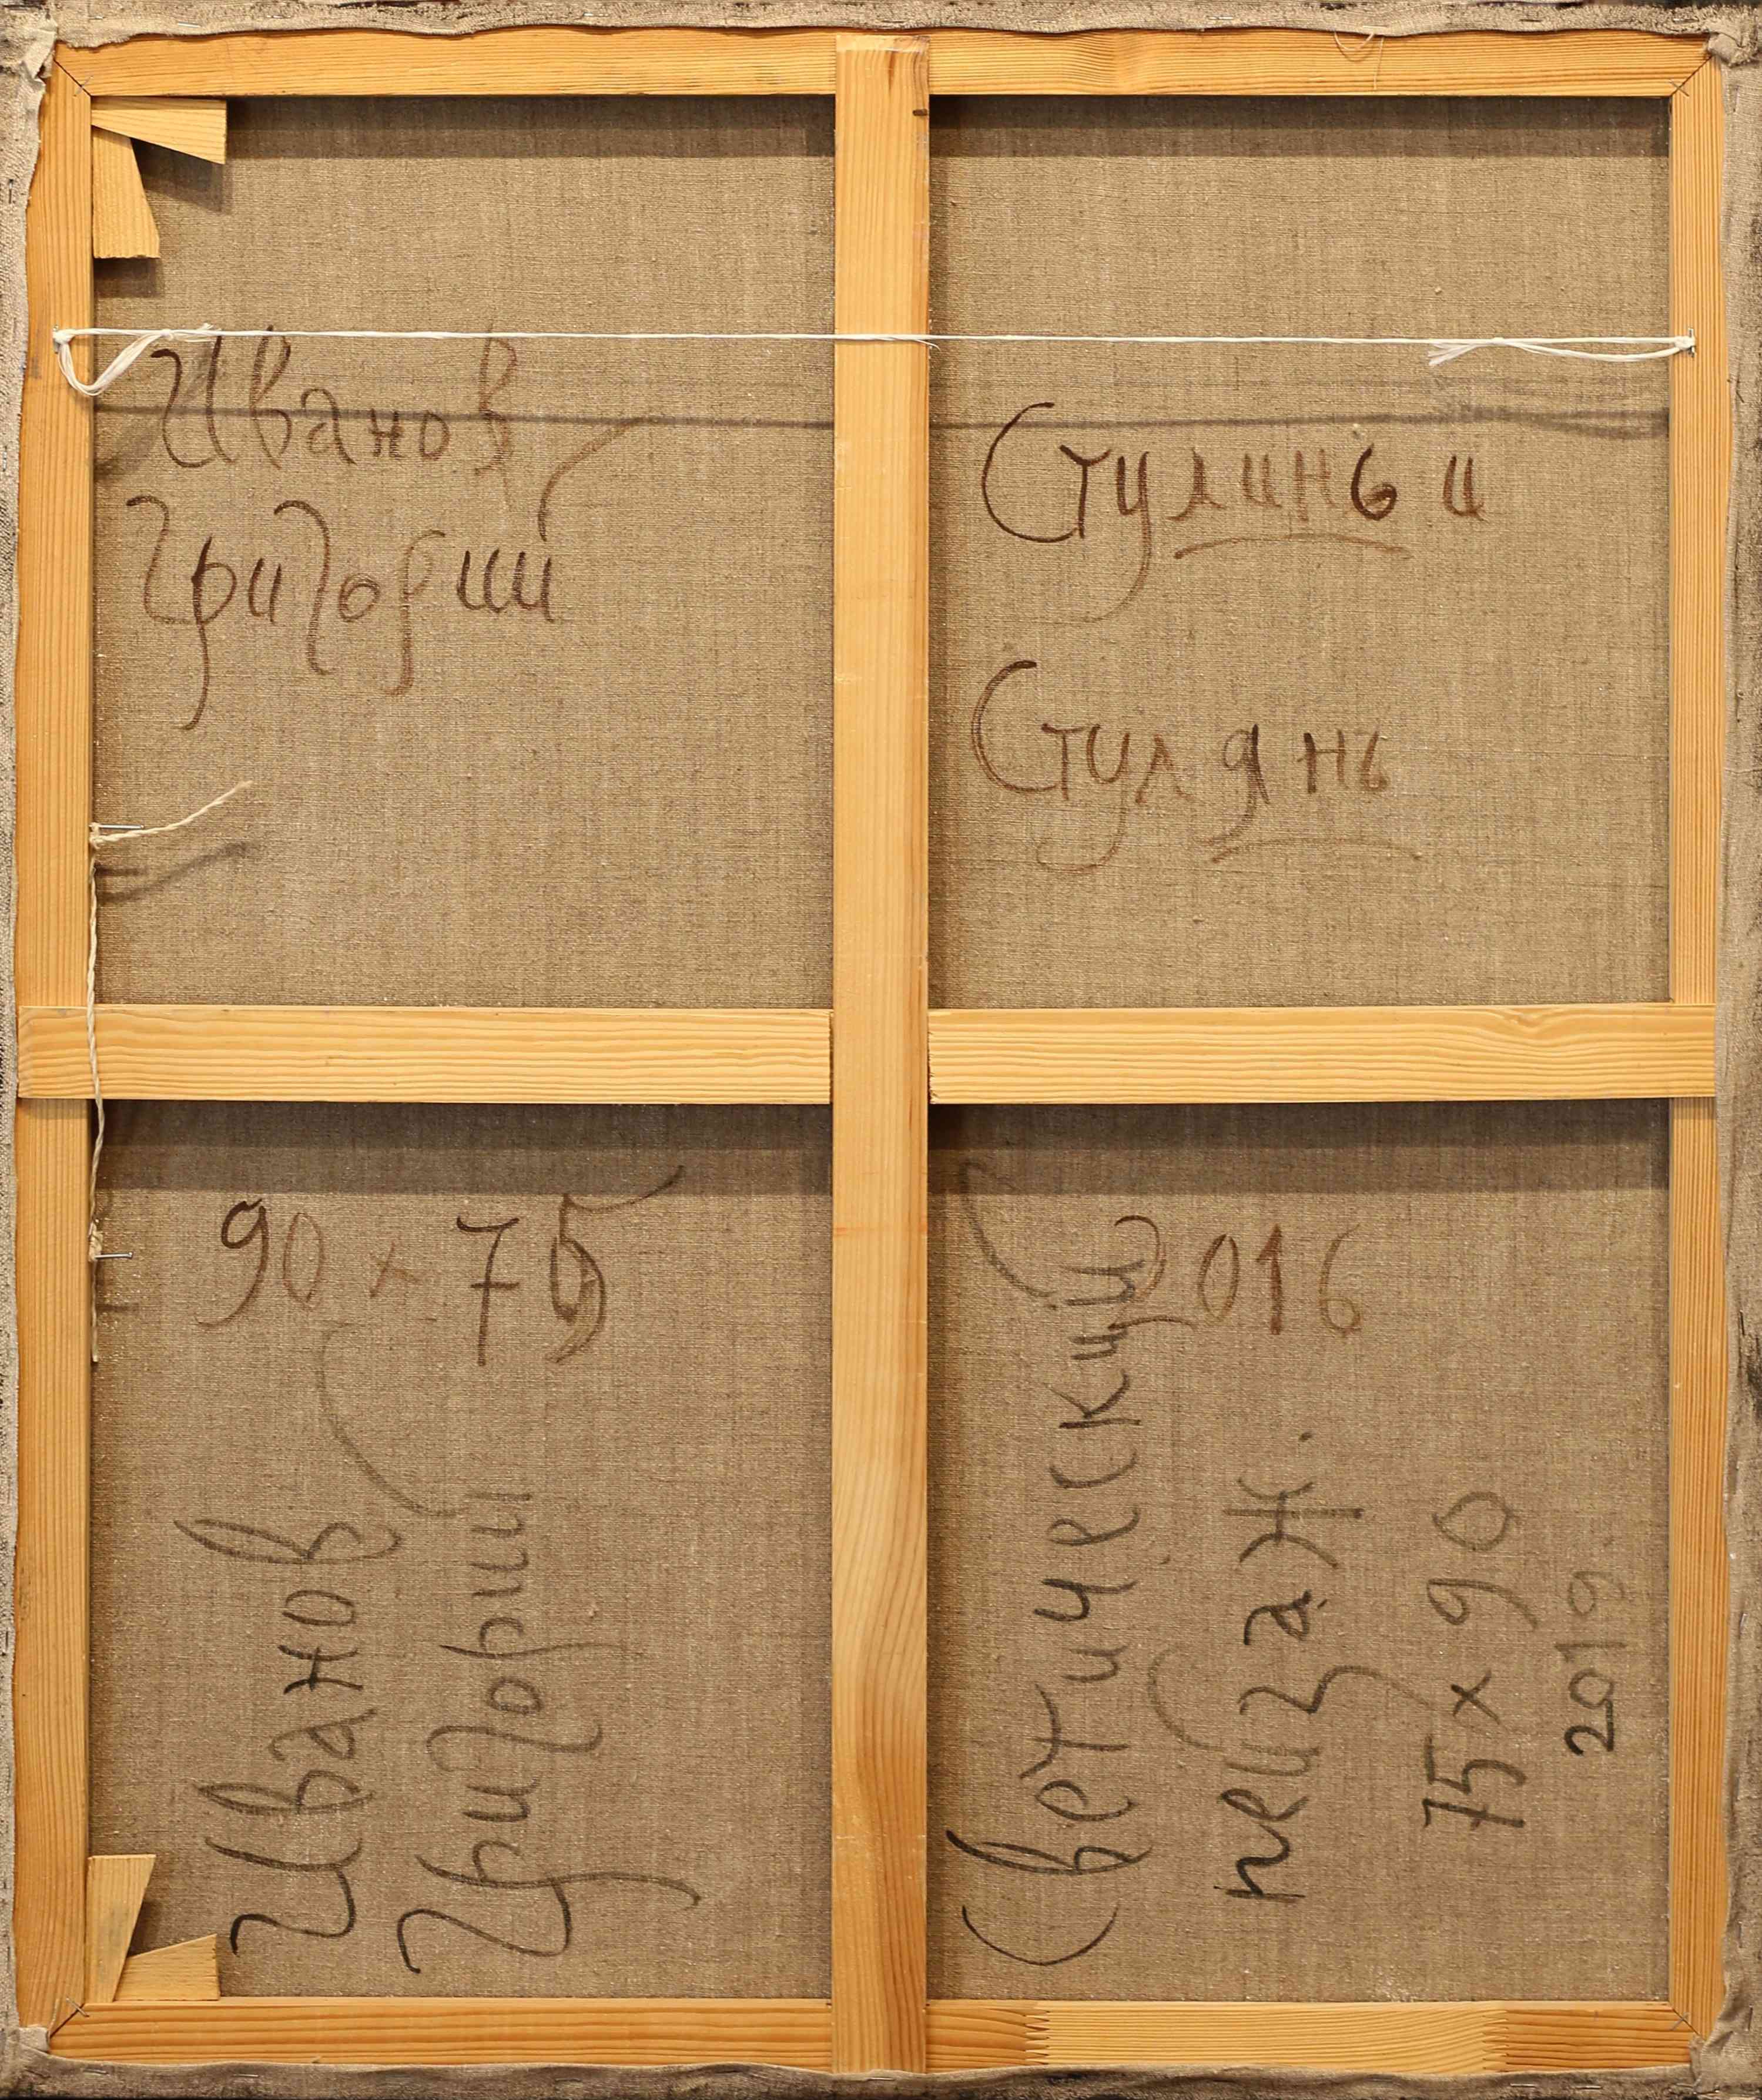 Иванов
Григорий
Стулинь и
Стулянь
90 x 75
2016
Иванов
Григорий
Светический
пейзаж.
75 x 90
2019